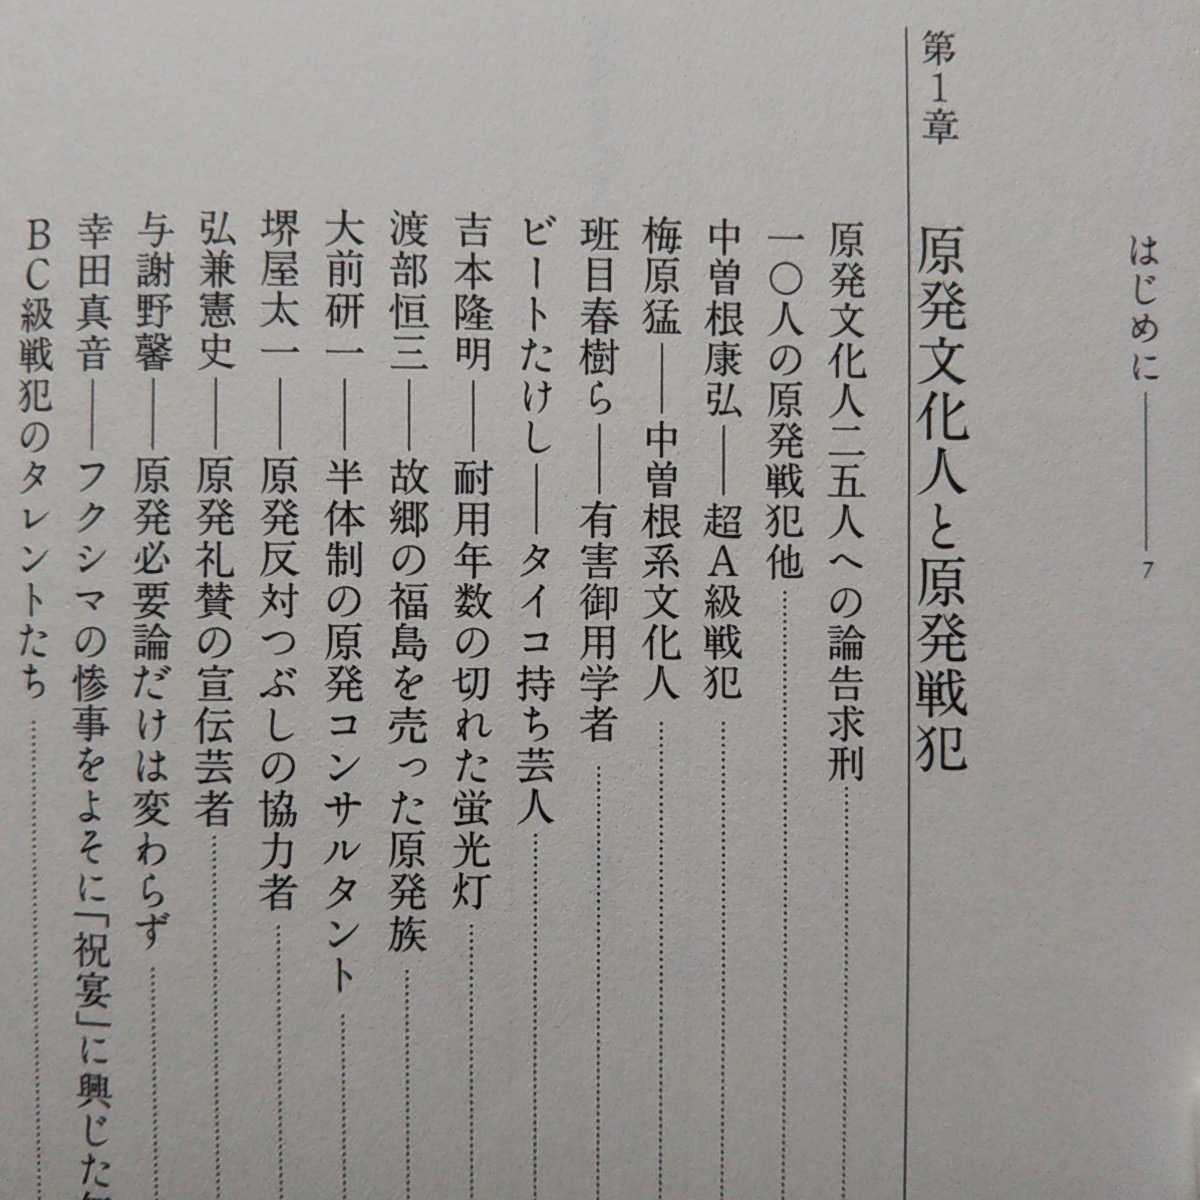 はじめに――― 7
第1章 原発文化人と原発戦犯
原発文化人二五人への論告求刑
一〇人の原発戦犯他
中曽根康弘――超A級戦犯
梅原猛――中曽根系文化人
班目春樹ら――有害御用学者
ビートたけし――タイコ持ち芸人
吉本隆明――耐用年数の切れた蛍光灯
渡部恒三――故郷の福島を売った原発族
大前研一――半体制の原発コンサルタント
堺屋太一――原発反対つぶしの協力者
弘兼憲史――原発礼賛の宣伝芸者
与謝野馨――原発必要論だけは変わらず
幸田真音――フクシマの惨事をよそに「祝宴」に興じた
BC級戦犯のタレントたち